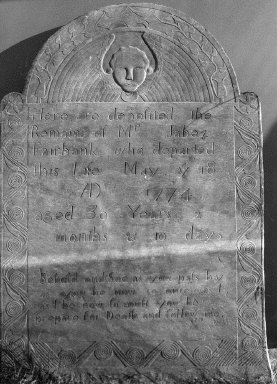 Here is deposited the
Remains of Mr Jabez
Fairbank who departed
this Life May ye 18
AD 1774
aged 30 Years 2
months & 10 days
Behold and See as you pass by
as you be now so once was I
as I be now so must you be
prepare for Death and follow me